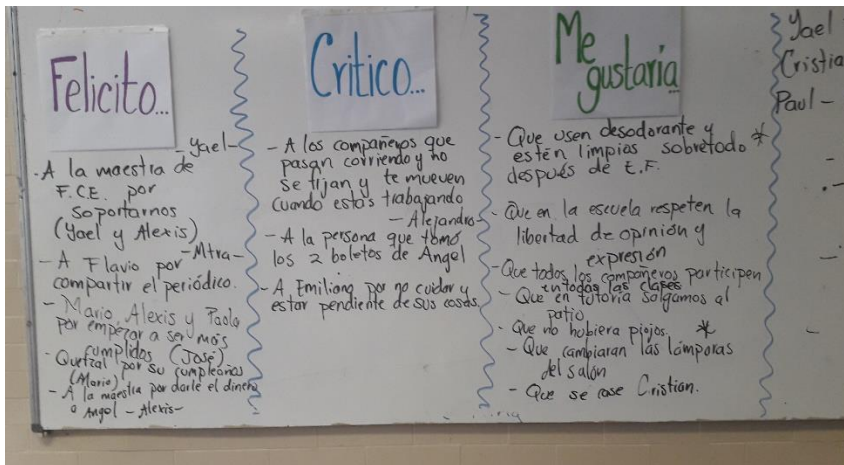 Felicito...
-Yael-
- A la maestra de
F.C.E. por
soportarnos
(Yael y Alexis)
-Mtra-
- A Flavio por
compartir el periódico.
- Mario, Alexis y Paola
por empezar a ser más
cumplidos (José)
- Quetzal por su cumpleaños
(Mario)
- A la maestra por darle el dinero
a Angel - Alexis-
Critico...
- A los compañeros que
pasan corriendo y no
se fijan y te mueven
cuando estás trabajando
- Alejandro-
- A la persona que tomó
los 2 boletos de Angel
- A Emiliano por no cuidar y
estar pendiente de sus cosas.
Me
gustaría...
- Que usen desodorante y
estén limpias sobretodo *
después de E.F.
- Que en la escuela respeten la
libertad de opinión y
expresión
- Que todos los compañeros participen
en todas las clases
- Que en tutoría salgamos al
patio
- Que no hubiera piojos. *
- Que cambiaran las lámparas
del salón
- Que se case Cristian.
Yael
Cristia
Paul -